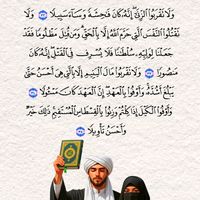 وَلَا تَقْرَبُوا۟ ٱلزِّنَىٰٓ إِنَّهُۥ كَانَ فَـٰحِشَةً وَسَآءَ سَبِيلًا ٣٢ وَلَا
تَقْتُلُوا۟ ٱلنَّفْسَ ٱلَّتِى حَرَّمَ ٱللَّهُ إِلَّا بِٱلْحَقِّ وَمَن قُتِلَ مَظْلُومًا فَقَدْ
جَعَلْنَا لِوَلِيِّهِۦ سُلْطَـٰنًا فَلَا يُسْرِف فِّى ٱلْقَتْلِ إِنَّهُۥ كَانَ
مَنصُورًا ٣٣ وَلَا تَقْرَبُوا۟ مَالَ ٱلْيَتِيمِ إِلَّا بِٱلَّتِى هِىَ أَحْسَنُ حَتَّىٰ
يَبْلُغَ أَشُدَّهُۥ وَأَوْفُوا۟ بِٱلْعَهْدِ إِنَّ ٱلْعَهْدَ كَانَ مَسْـُٔولًا ٣٤
وَأَوْفُوا۟ ٱلْكَيْلَ إِذَا كِلْتُمْ وَزِنُوا۟ بِٱلْقِسْطَاسِ ٱلْمُسْتَقِيمِ ذَٰلِكَ خَيْرٌ
وَأَحْسَنُ تَأْوِيلًا ٣٥